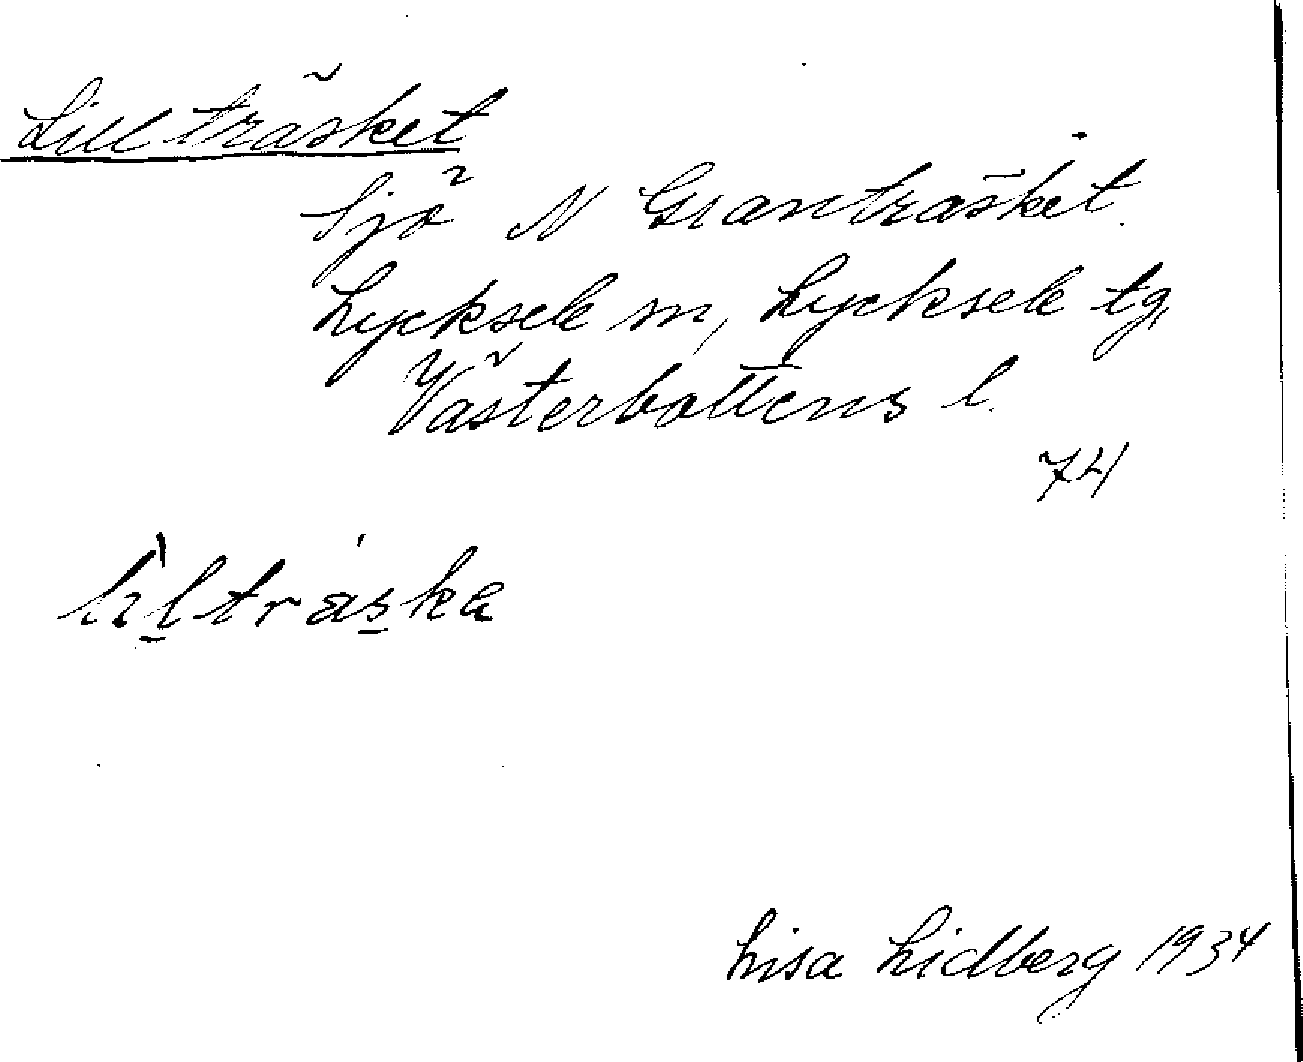 Lillträsket
Sjö N Granträsket.
Lycksele sn, Lycksele tg,
Västerbottens l.
74
lìl̲trás̲ka
Lisa Lidberg 1934